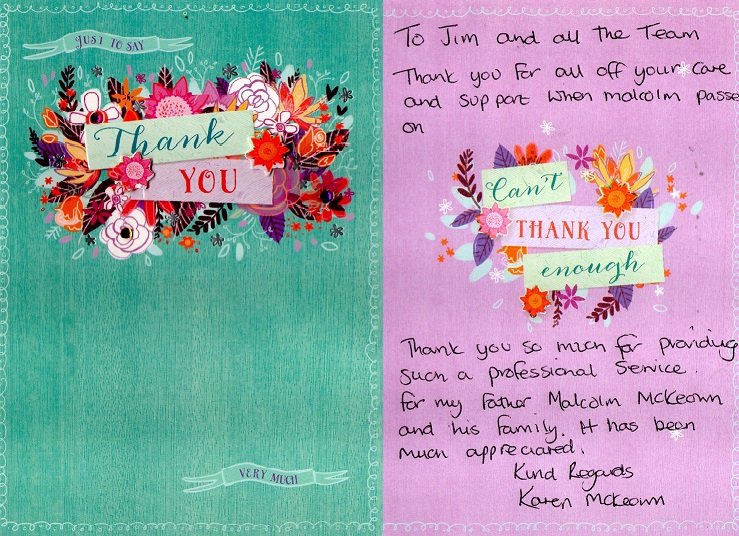 JUST TO SAY
Thank
YOU
VERY MUCH
To Jim and all the Team
Thank you for all off your care
and support when malcolm passe
on
Can't
THANK YOU
enough
Thank you so much for providing
such a professional service.
for my Father Malcolm McKeown
and his family. It has been
much appreciated.
Kind Regards
Karen McKeown